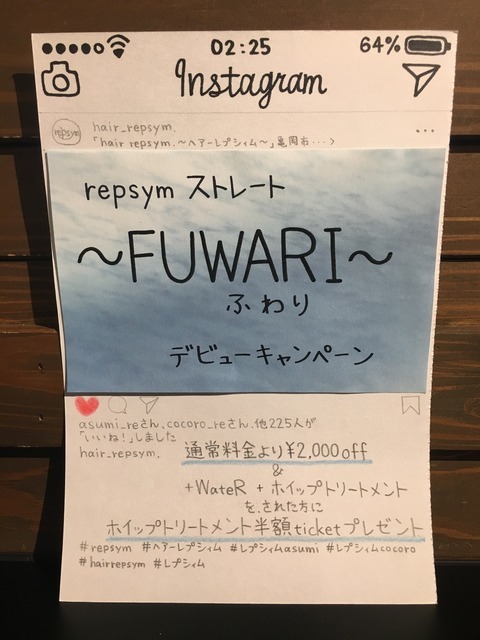 02:25 64%
Instagram
repsym
hair_repsym.
「hair repsym.〜ヘアーレプシィム〜」亀岡市・・・>
repsym ストレート
〜FUWARI〜
ふわり
デビューキャンペーン
asumi_reさん、cocoro_reさん、他225人が
「いいね！」しました
hair_repsym. 通常料金より¥2,000off
&
+WateR + ホイップトリートメント
を、された方に
ホイップトリートメント半額ticketプレゼント
#repsym #ヘアーレプシィム #レプシィムasumi #レプシィムcocoro
#hairrepsym #レプシィム